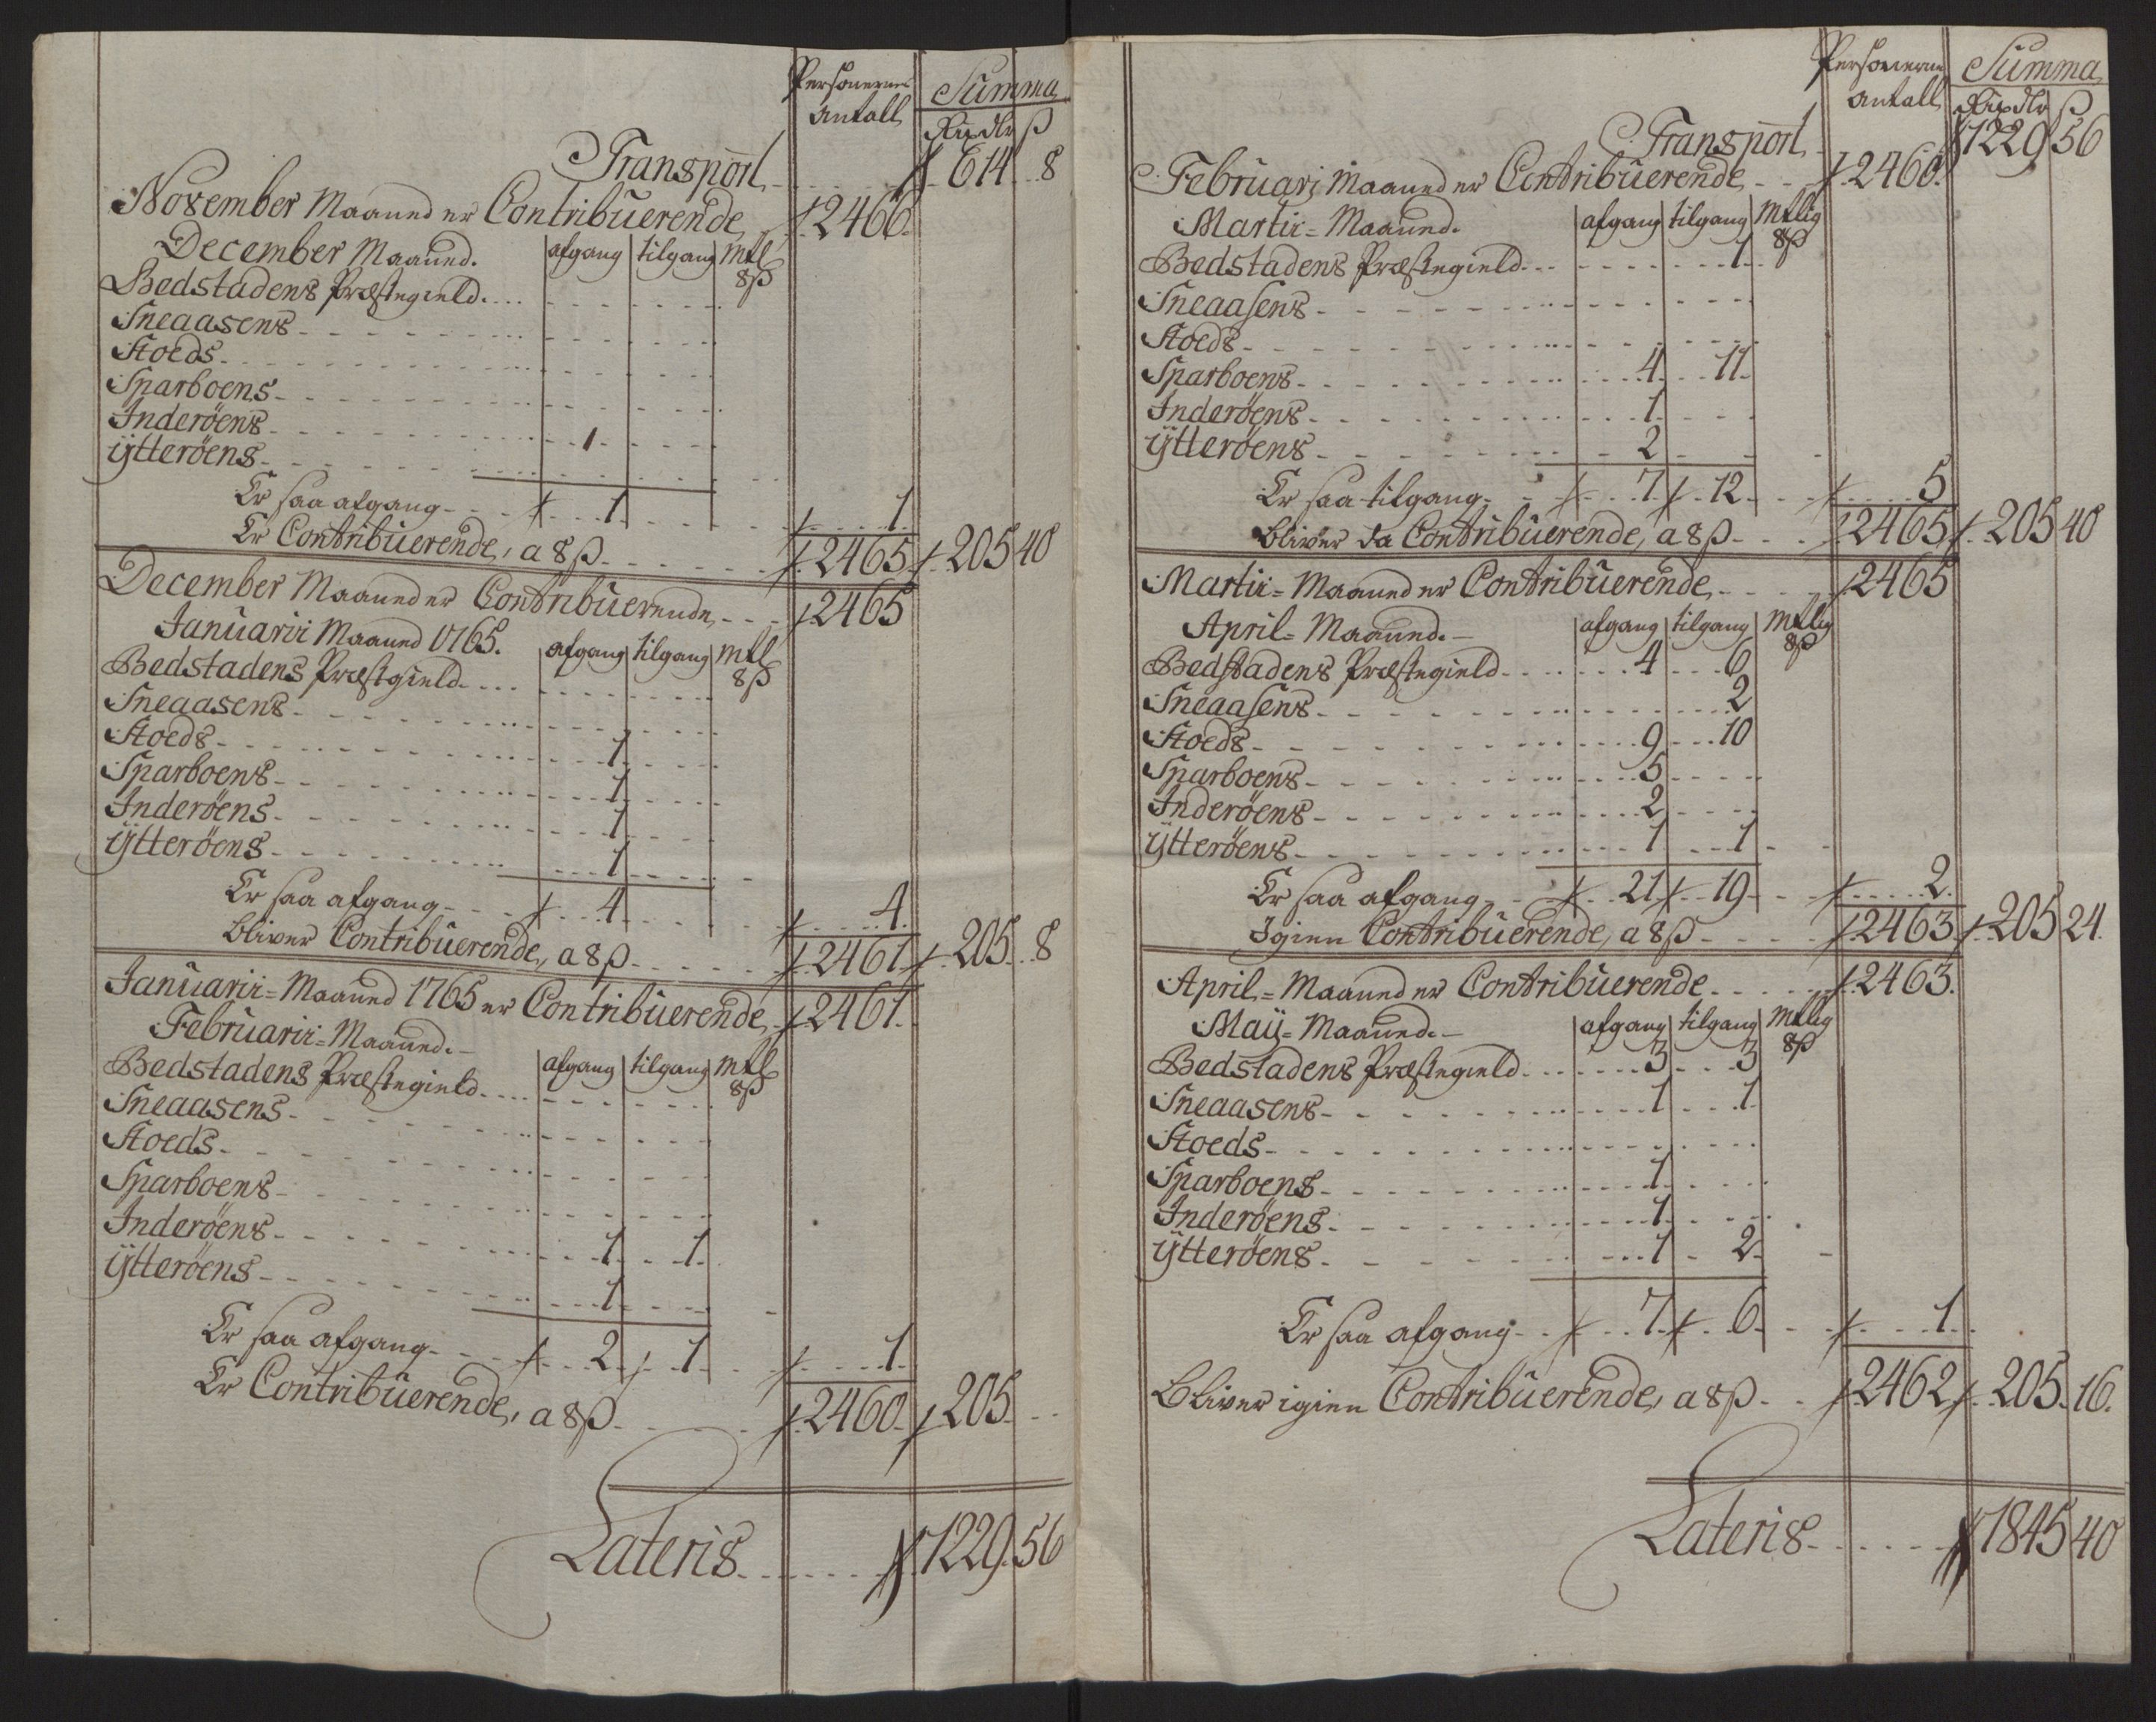 Personernes Summa
Antall Rixdlr ß
Transport 614 8
November Maaned er Contribüerende 2466
December Maaned. afgang tilgang Mtl 8ß
Bedstadens Præstegield
Sneaasens
Stoeds
Sparboens
Inderöens 1
ÿtteröens
Er saa afgang 1 1
Er Contribüerende, a 8 ß 2465 205 40
December Maaned er Contribüerende 2465
Januarii Maaned 1765. afgang tilgang Mtl 8ß
Bedstadens Præstgield
Sneaasens
Stoeds 1
Sparboens 1
Inderöens 1
ÿtteröens 1
Er saa afgang 4 4
bliver Contribüerende, a 8 ß 2461 205 8
Januarii= Maaned 1765 er Contribüerende 2461
Februarii= Maaned. afgang tilgang Mtl 8ß
Bedstadens Præstegield
Sneaasens
Stoeds
Sparboens
Inderöens 1 1
ÿtteröens 1
Er saa afgang 2 1 1
Er Contribüerende, a 8 ß 2460 205
Lateris 1229 56
Personernes Summa
Antall Rixdlr ß
Transport 1229 56
Februarj Maaned er Contribüerende 2460
Martii= Maaned. afgang tilgang Mtlig 8ß
Bedstadens Præstegield 1
Sneaasens
Stoeds
Sparboens 4 11
Inderöens 1
ÿtteröens 2
Er saa tilgang 7 12 5
bliver da Contribüerende, a 8 ß 2465 205 40
Martii= Maaned er Contribüerende 2465
April= Maaned. afgang tilgang Mtlig 8ß
Bedstadens Præstegield 4 6
Sneaasens 2
Stoeds 9 10
Sparboens 5
Inderöens 2
ÿtteröens 1 1
Er saa afgang 21 19 2
Igien Contribüerende, a 8 ß 2463 205 24
April= Maaned er Contribüerende 2463
Maÿ= Maaned. afgang tilgang Mtlig 8ß
Bedstadens Præstegield 3 3
Sneaasens 1 1
Stoeds
Sparboens 1
Inderöens 1
ÿtteröens 1 2
Er saa afgang 7 6 1
Bliver igien Contribüerende, a 8 ß 2462 205 16
Lateris 1845 40